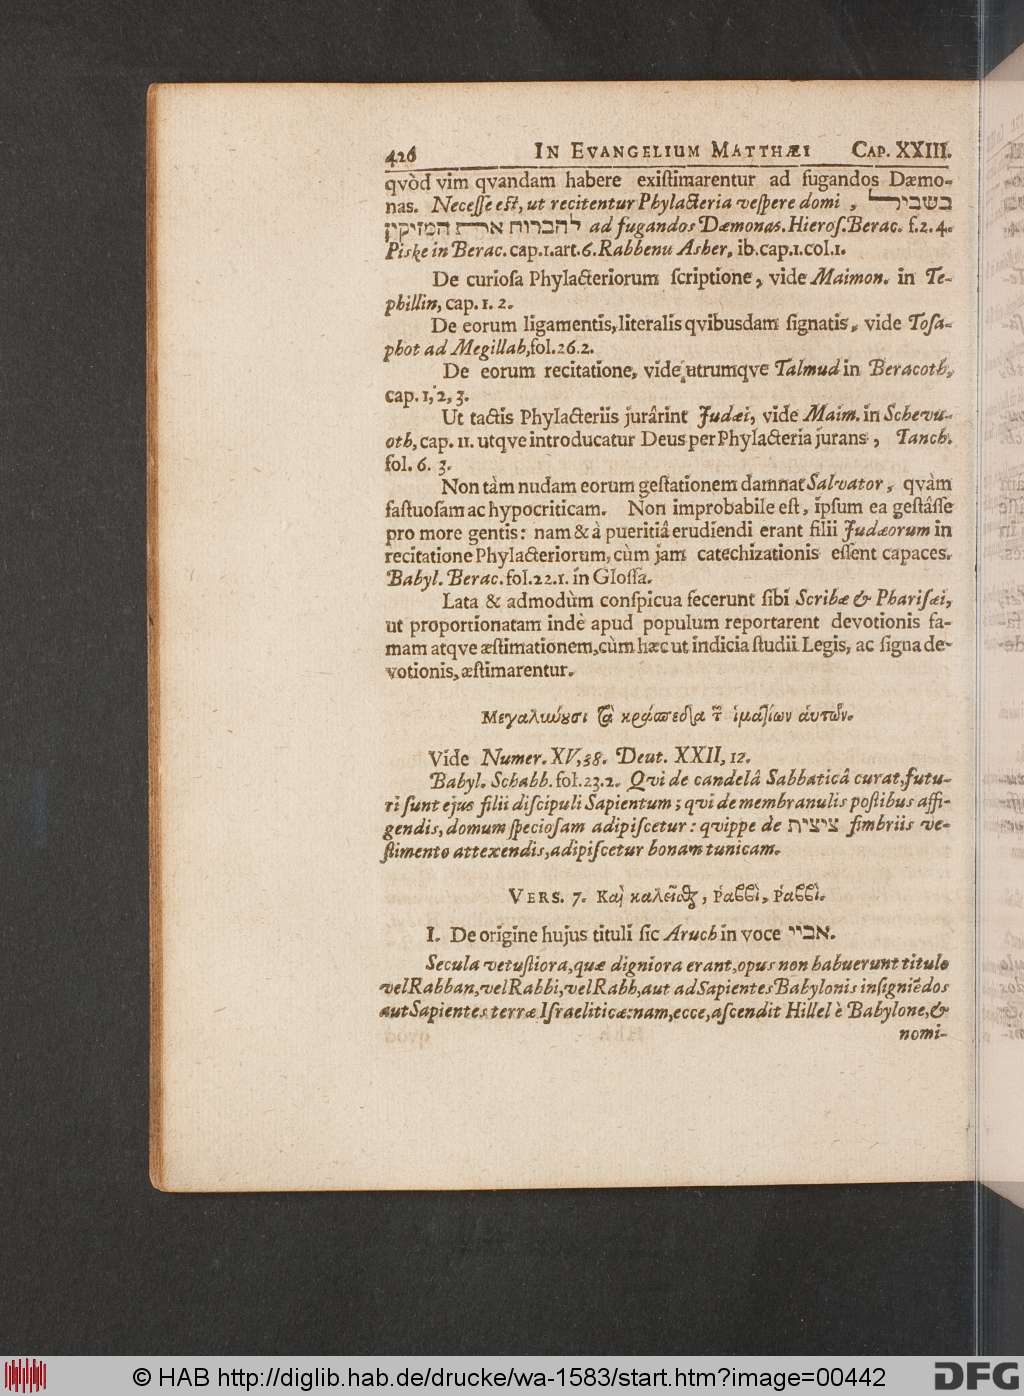 426 IN EVANGELIUM MATTHÆI CAP. XXIII.
qvòd vim qvandam habere exiſtimarentur ad fugandos Dæmo-
nas. Neceſſe eſt, ut recitentur Phylacteria veſpere domi, בשביל
להברוח את המזיקין ad fugandos Dæmonas. Hieroſ. Berac. f.2.4.
Piske in Berac. cap.1.art.6. Rabbenu Asher, ib.cap.1.col.1.
De curioſa Phylacteriorum ſcriptione, vide Maimon. in Te-
phillin, cap. 1. 2.
De eorum ligamentis, literalis qvibusdam ſignatis, vide Toſa-
phot ad Megillah, fol.26.2.
De eorum recitatione, vide utrumqve Talmud in Beracoth,
cap. 1, 2, 3.
Ut tactis Phylacteriis jurârint Judæi, vide Maim. in Schevu-
oth, cap. 11. utqve introducatur Deus per Phylacteria jurans, Tanch.
fol. 6. 3.
Non tàm nudam eorum geſtationem damnat Salvator, qvàm
faſtuoſam ac hypocriticam. Non improbabile eſt, ipſum ea geſtâſſe
pro more gentis: nam & à pueritiâ erudiendi erant filii Judæorum in
recitatione Phylacteriorum, cùm jam catechizationis eſſent capaces.
Babyl. Berac. fol.22.1. in Gloſſa.
Lata & admodùm conſpicua fecerunt ſibi Scribæ & Phariſæi,
ut proportionatam inde apud populum reportarent devotionis fa-
mam atqve æſtimationem, cùm hæc ut indicia ſtudii Legis, ac ſigna de-
votionis, æſtimarentur.
Μεγαλιώουσι τὰ κράσπεδα τ῀ ἱματίων αὑτῶν.
Vide Numer. XV, 38. Deut. XXII, 12.
Babyl. Schabb. fol.23.2. Qvi de candelâ Sabbaticâ curat, futu-
ri ſunt ejus filii diſcipuli Sapientum; qvi de membranulis poſtibus affi-
gendis, domum ſpecioſam adipiſcetur: qvippe de ציצית fimbriis ve-
ſtimento attexendis, adipiſcetur bonam tunicam.
VERS. 7. Καὶ καλεῖσθαι, Ῥαββὶ, Ῥαββὶ.
I. De origine hujus tituli ſic Aruch in voce אביי.
Secula vetuſtiora, quæ digniora erant, opus non habuerunt titulo
vel Rabban, vel Rabbi, vel Rabb, aut ad Sapientes Babylonis inſigniẽdos
aut Sapientes terræ Iſraeliticæ: nam, ecce, aſcendit Hillel è Babylone, &
nomi-
© HAB http://diglib.hab.de/drucke/wa-1583/start.htm?image=00442 DFG